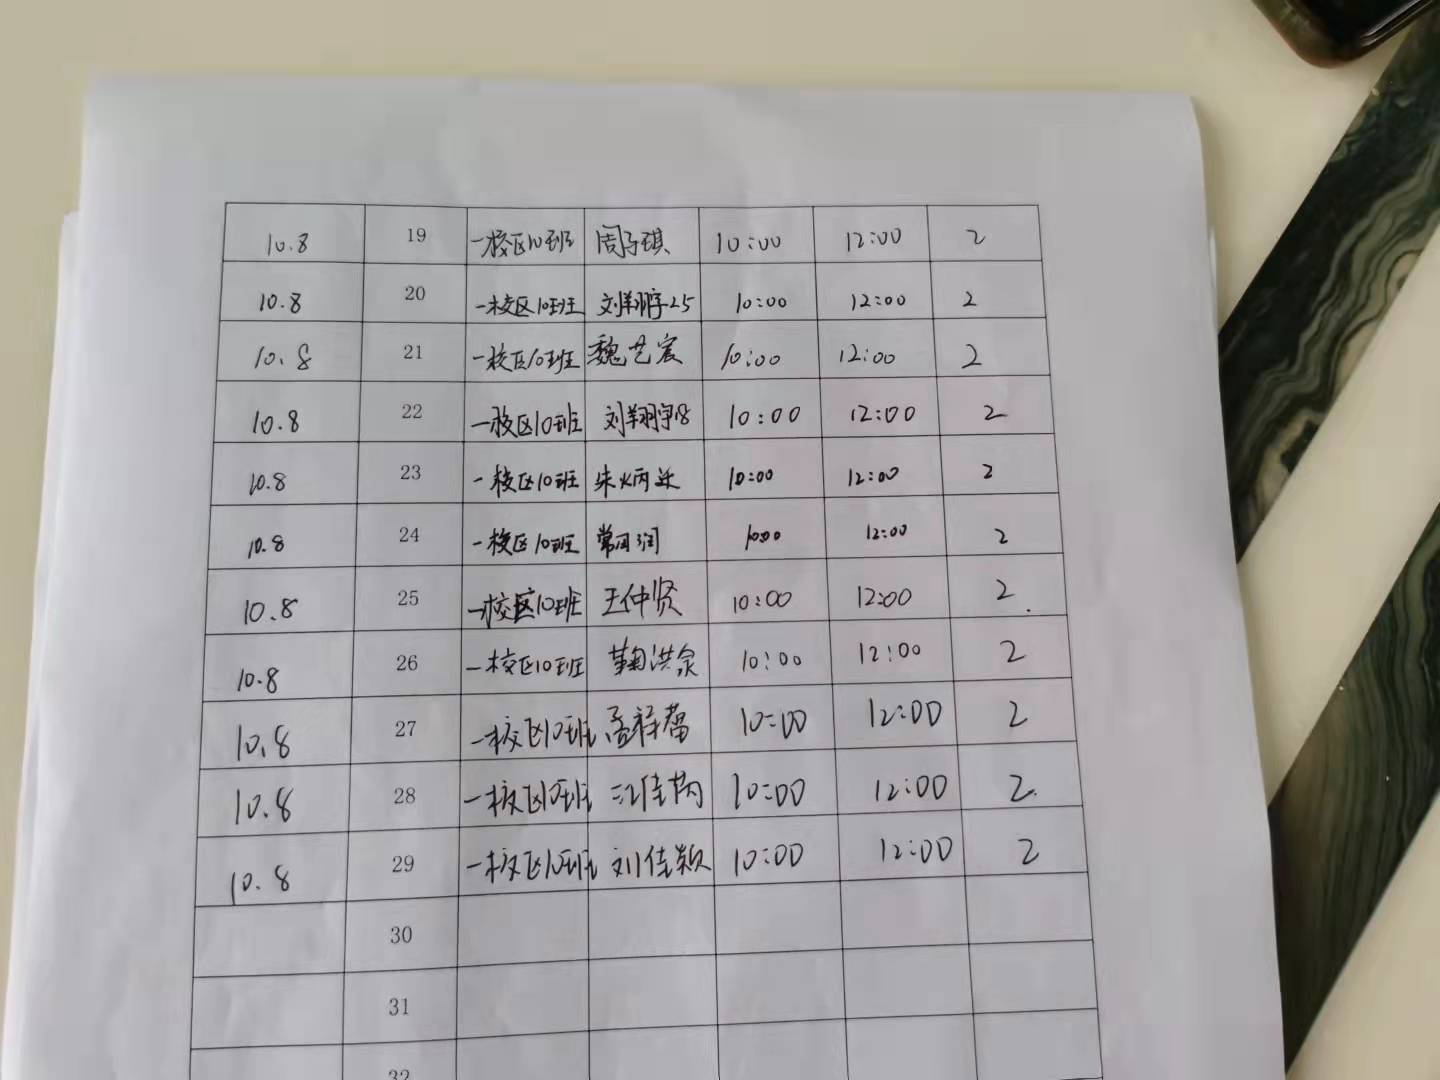 10.8 19 一校区10班 周子琪 10:00 12:00 2
10.8 20 一校区10班 刘翔宇25 10:00 12:00 2
10.8 21 一校区10班 魏艺宸 10:00 12:00 2
10.8 22 一校区10班 刘翔宇18 10:00 12:00 2
10.8 23 一校区10班 朱炳 10:00 12:00 2
10.8 24 一校区10班 10:00 12:00 2
10.8 25 一校区10班 王仲贤 10:00 12:00 2
10.8 26 一校区10班 10:00 12:00 2
10.8 27 一校区10班 孟祥 10:00 12:00 2
10.8 28 一校区10班 江佳 10:00 12:00 2
10.8 29 一校区10班 刘佳颖 10:00 12:00 2
30
31
32